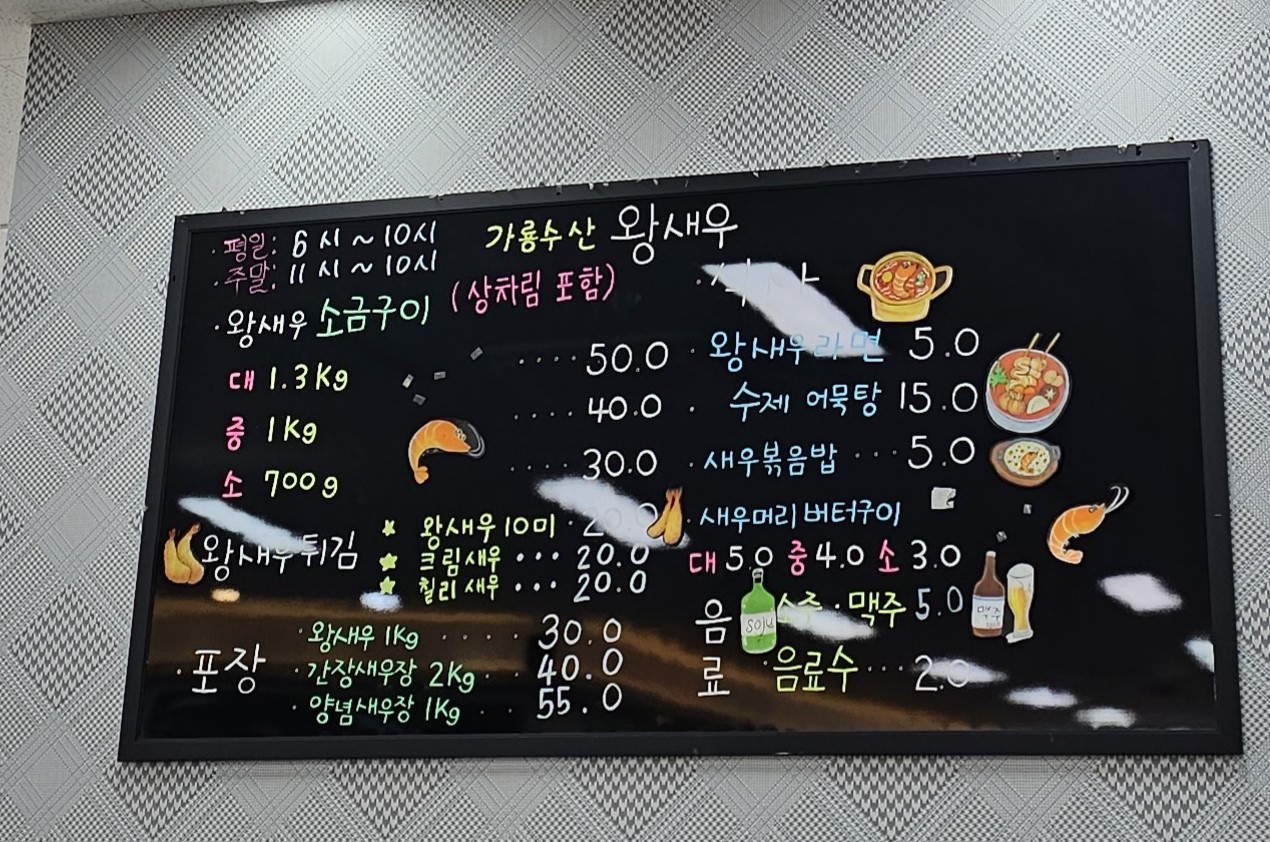 · 평일: 6시 ~ 10시
· 주말: 11시 ~ 10시
가룡수산 왕새우
· 왕새우 소금구이 (상차림 포함)
대 1.3Kg ···· 50.0
중 1Kg ···· 40.0
소 700g ···· 30.0
왕새우튀김
왕새우10미 · 20.0
크림새우 ··· 20.0
칠리새우 ··· 20.0
· 포장
· 왕새우 1Kg ···· 30.0
· 간장새우장 2Kg ·· 40.0
· 양념새우장 1Kg ·· 55.0
· 왕새우라면 5.0
· 수제 어묵탕 15.0
· 새우볶음밥 ··· 5.0
· 새우머리버터구이
대 5.0 중 4.0 소 3.0
음료
soju
소주 · 맥주 5.0
맥주
· 음료수 ··· 2.0